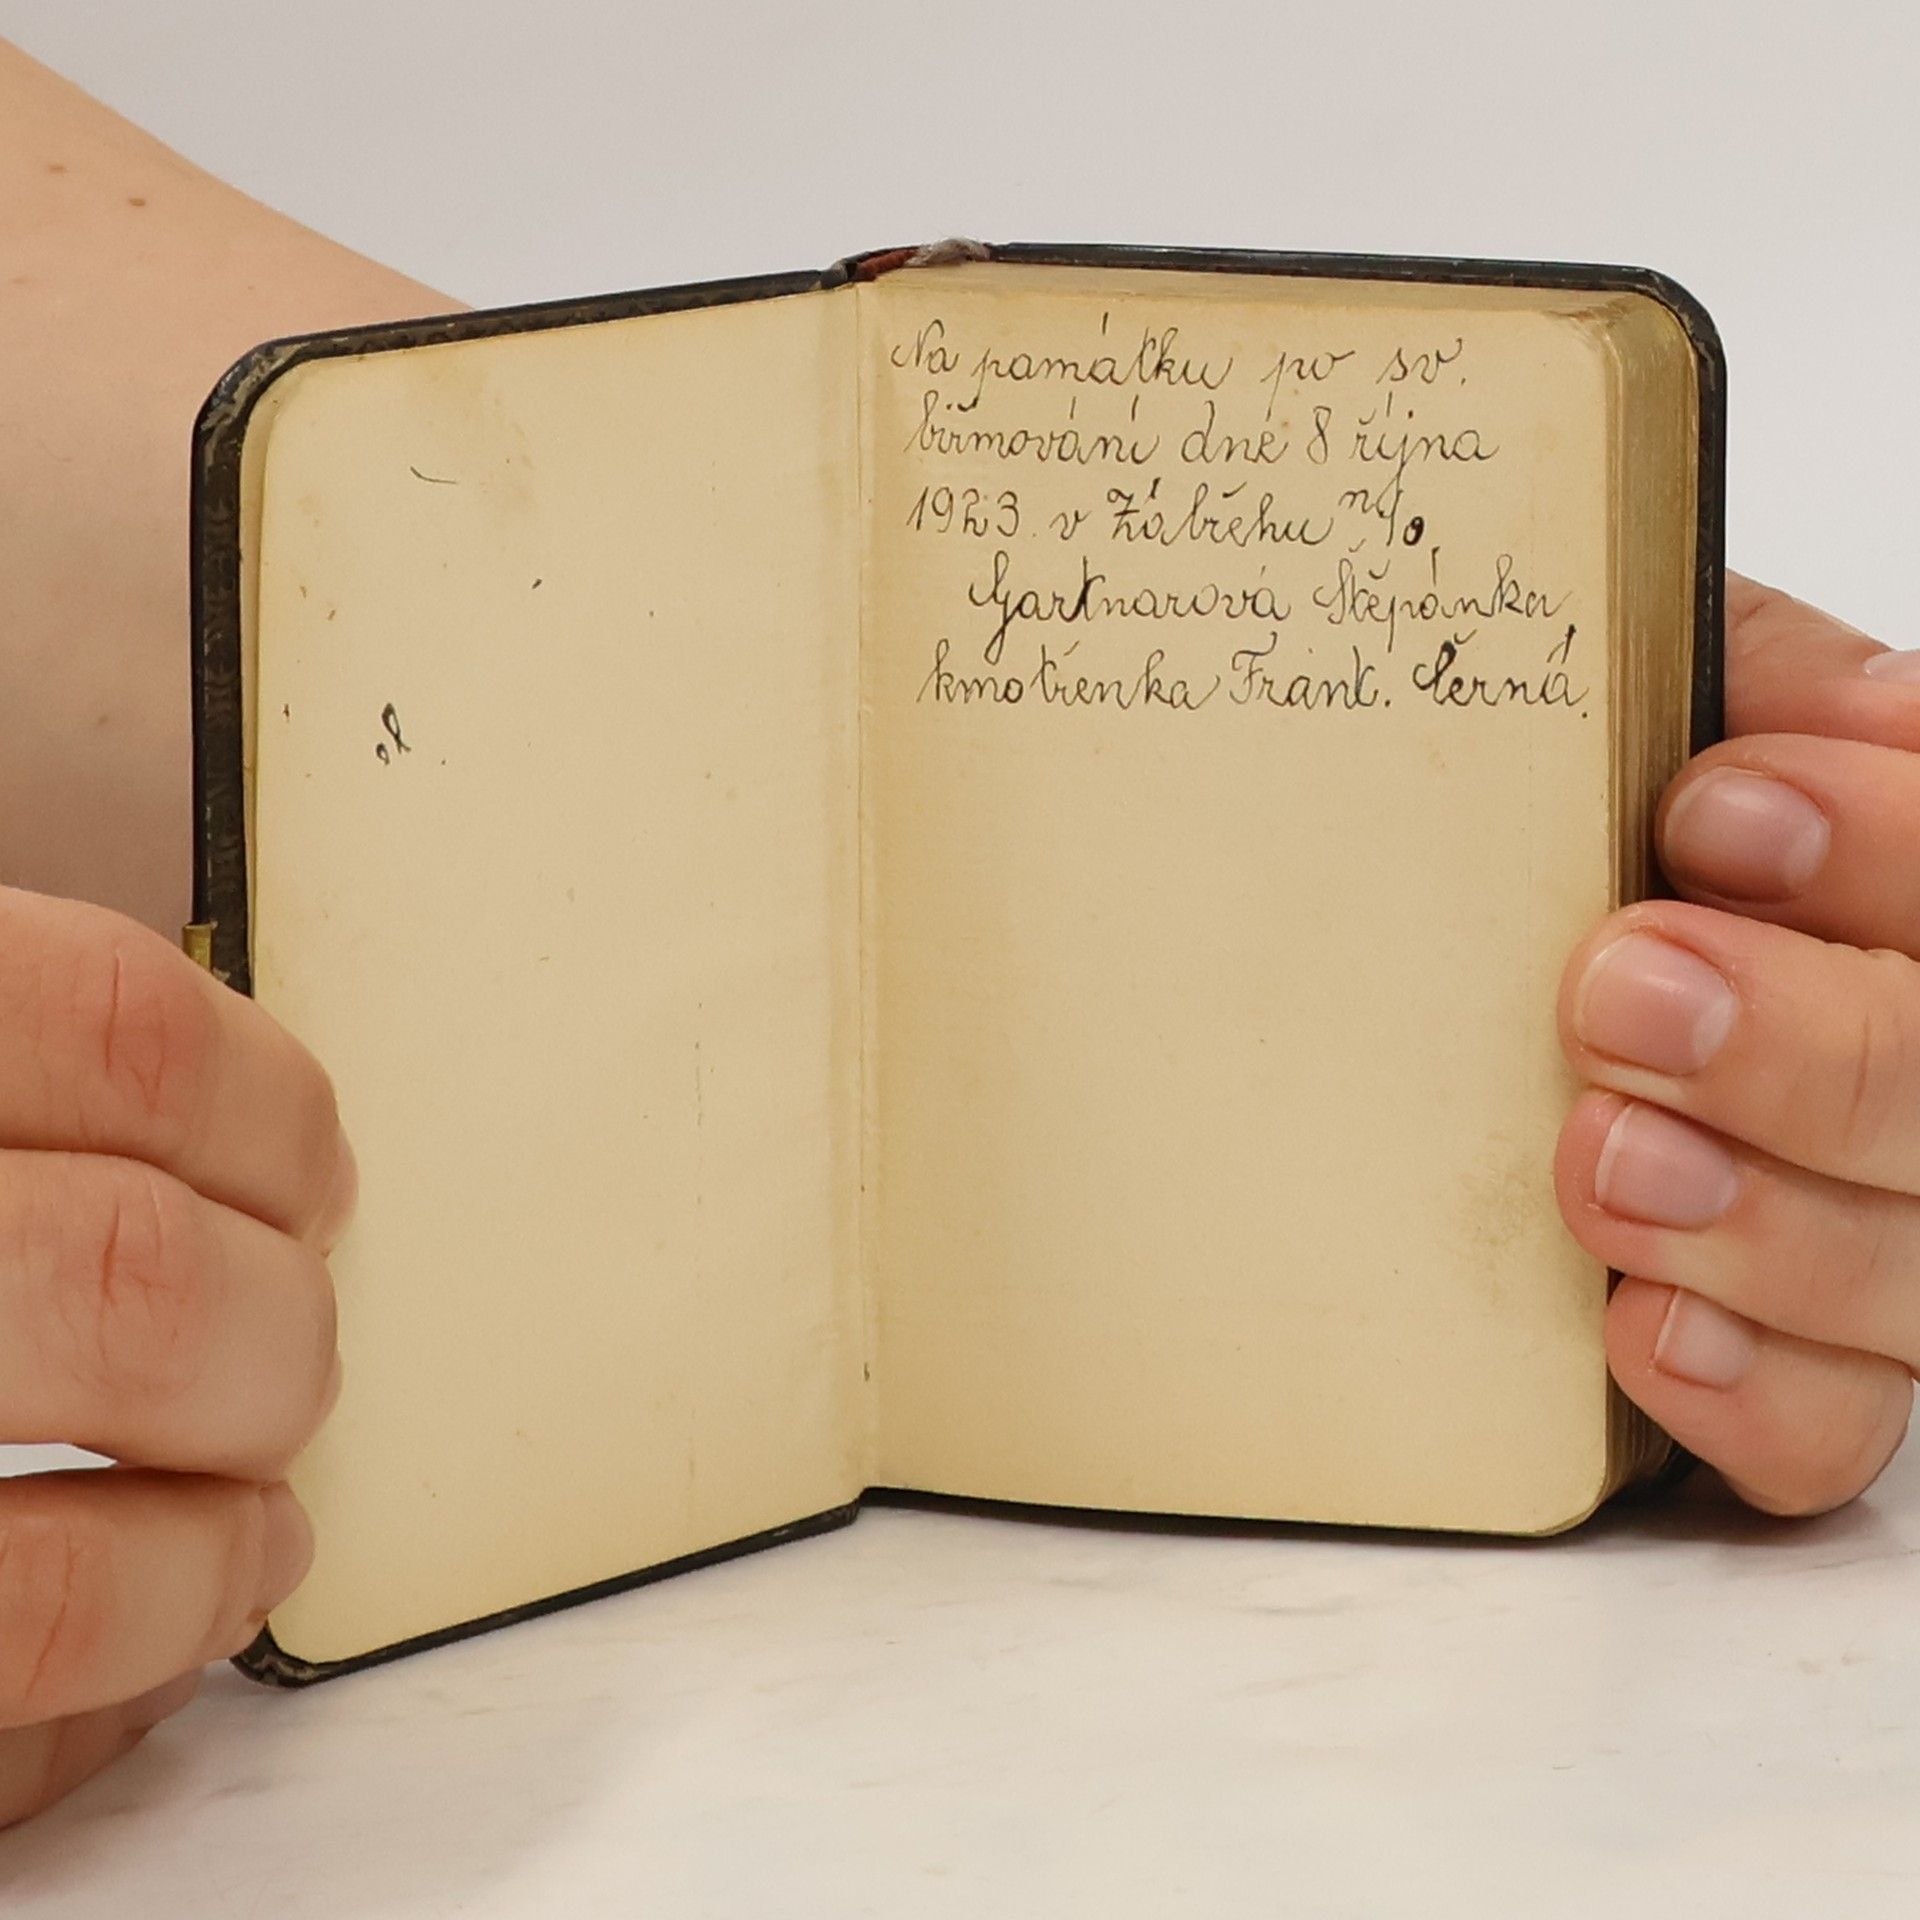 Na památku po sv.
biřmování dne 8 října
1923. v Zábřehu n/o.
Gartnarová Štěpánka
kmotřenka Frant. Černá.